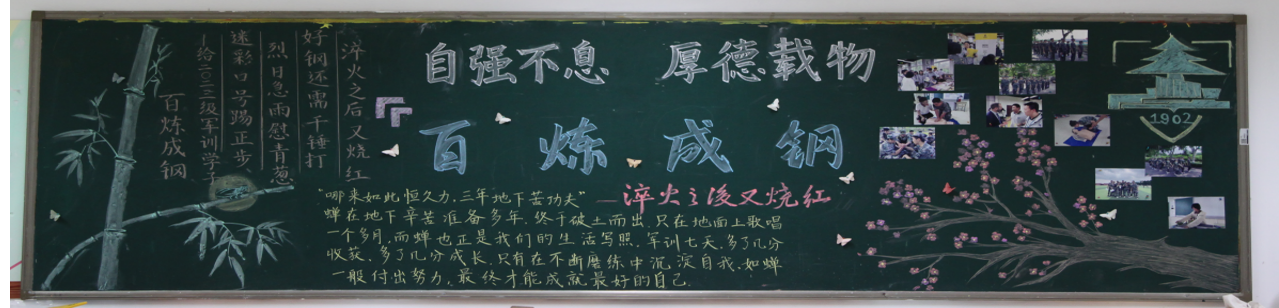 百炼成钢
—给二〇二三级军训学子
迷彩口号踢正步
烈日急雨慰青葱
好钢还需千锤打
淬火之后又烧红
自强不息 厚德载物
百炼成钢
——淬火之後又烧红
"哪来如此恒久力,三年地下苦功夫"
蝉在地下辛苦准备多年,终于破土而出,只在地面上歌唱
一个多月,而蝉也正是我们的生活写照,军训七天,多了几分
收获,多了几分成长,只有在不断磨练中沉淀自我,如蝉
一般付出努力,最终才能成就最好的自己.
1902